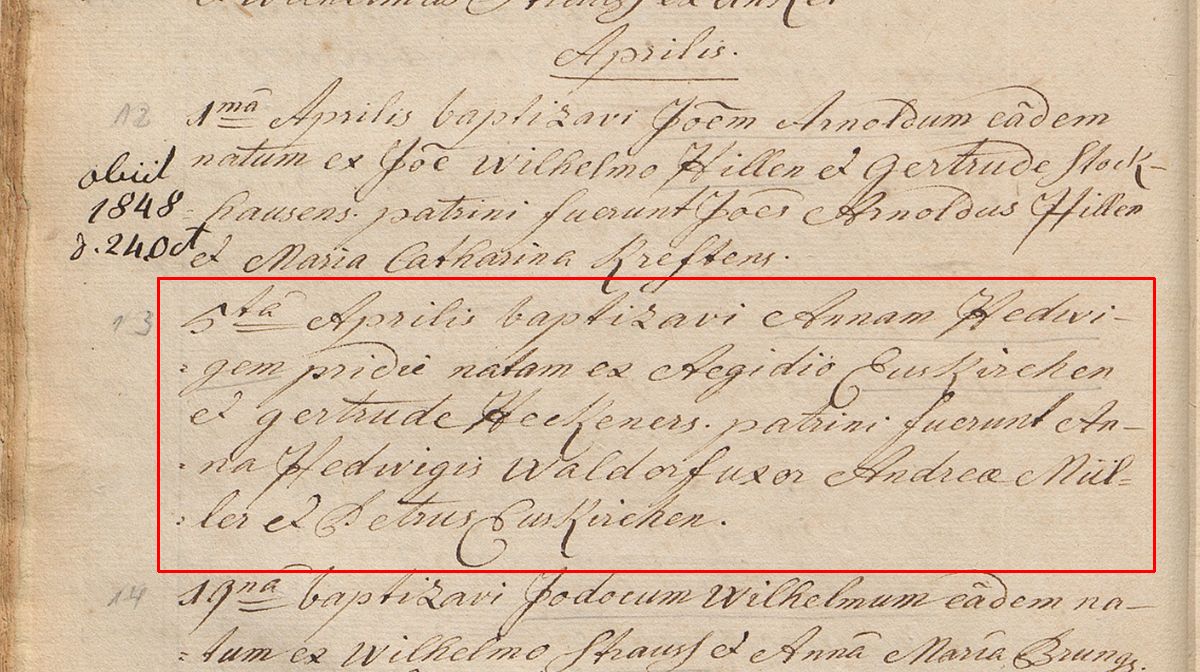 et Wilhelmus Strauss ex Unkel
Aprilis.
12 1mã Aprilis baptizavi Joẽm Arnoldum eãdem
natum ex Joẽ Wilhelmo Hillen et Gertrude Stock-
obiit 1848 d. 24. Oct
-hausens. patrini fuerunt Joẽs Arnoldus Hillen
et Maria Catharina Kreftens.
13 5tã Aprilis baptizavi Annam Hedwi-
-gem pridie natam ex Aegidio Euskirchen
et Gertrude Heckeners. patrini fuerunt An-
-na Hedwigis Waldorf uxor Andreæ Mül-
-ler et Petrus Euskirchen.
14 19nã baptizavi Jodocum Wilhelmum eãdem na-
-tum ex Wilhelmo Strauss et Annã Mariã Brung.